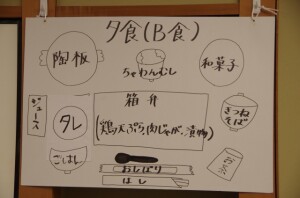 夕食(B食)
陶板
ちゃわんむし
和菓子
ジュース
タレ
箱弁
(鶏天ぷら,肉じゃが,漬物)
きつね
そば
ごはん
おしぼり
はし